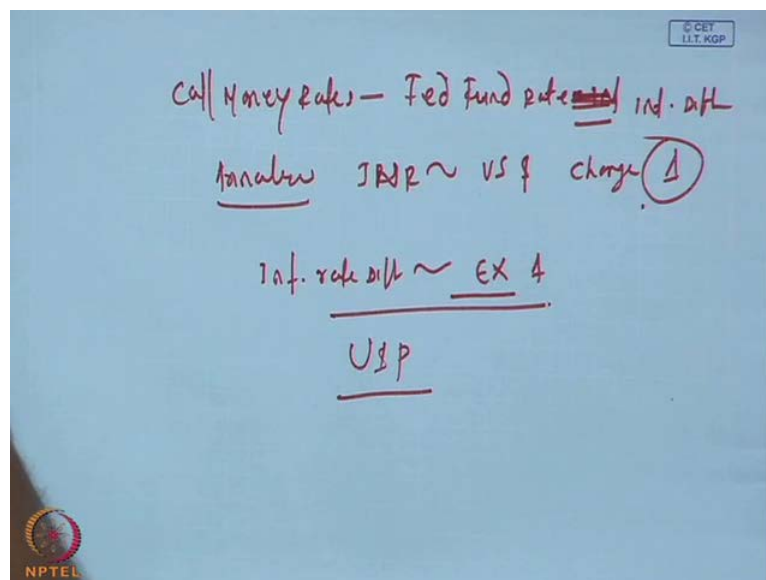 © CET
I.I.T. KGP
Call Money Rates – Fed Fund Rate int. Diff
INR ~ US $ change Δ
Int. rate diff ~ EX Δ
NPTEL